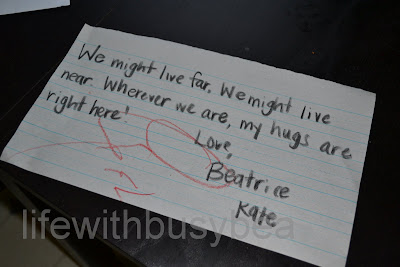 We might live far. We might live
near. Wherever we are, my hugs are
right here!
Love,
Beatrice
Kate
lifewithbusybea